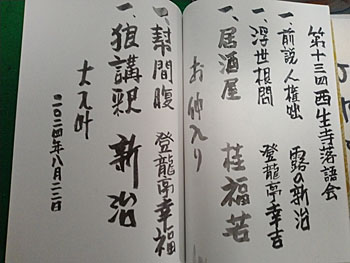 第十三回西生寺落語会
一、前説 人権 露の新治
一、浮世根問 登龍亭幸吉
一、居酒屋 桂福若
お仲入り
一、幇間腹 登龍亭幸福
一、狼講釈 新治
大入叶
二〇二四年八月二二日